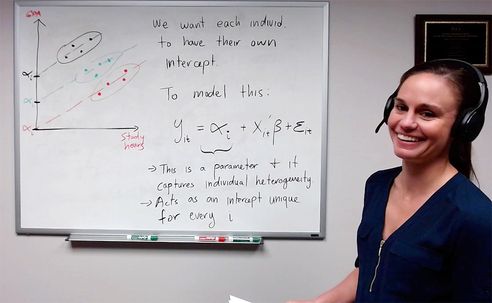 We want each individ.
to have their own
intercept.
To model this:
y_it = α_i + X_it'β + ε_it
→ This is a parameter + it
captures individual heterogeneity.
→ Acts as an intercept unique
for every i
α
α
α_i
Study
hours